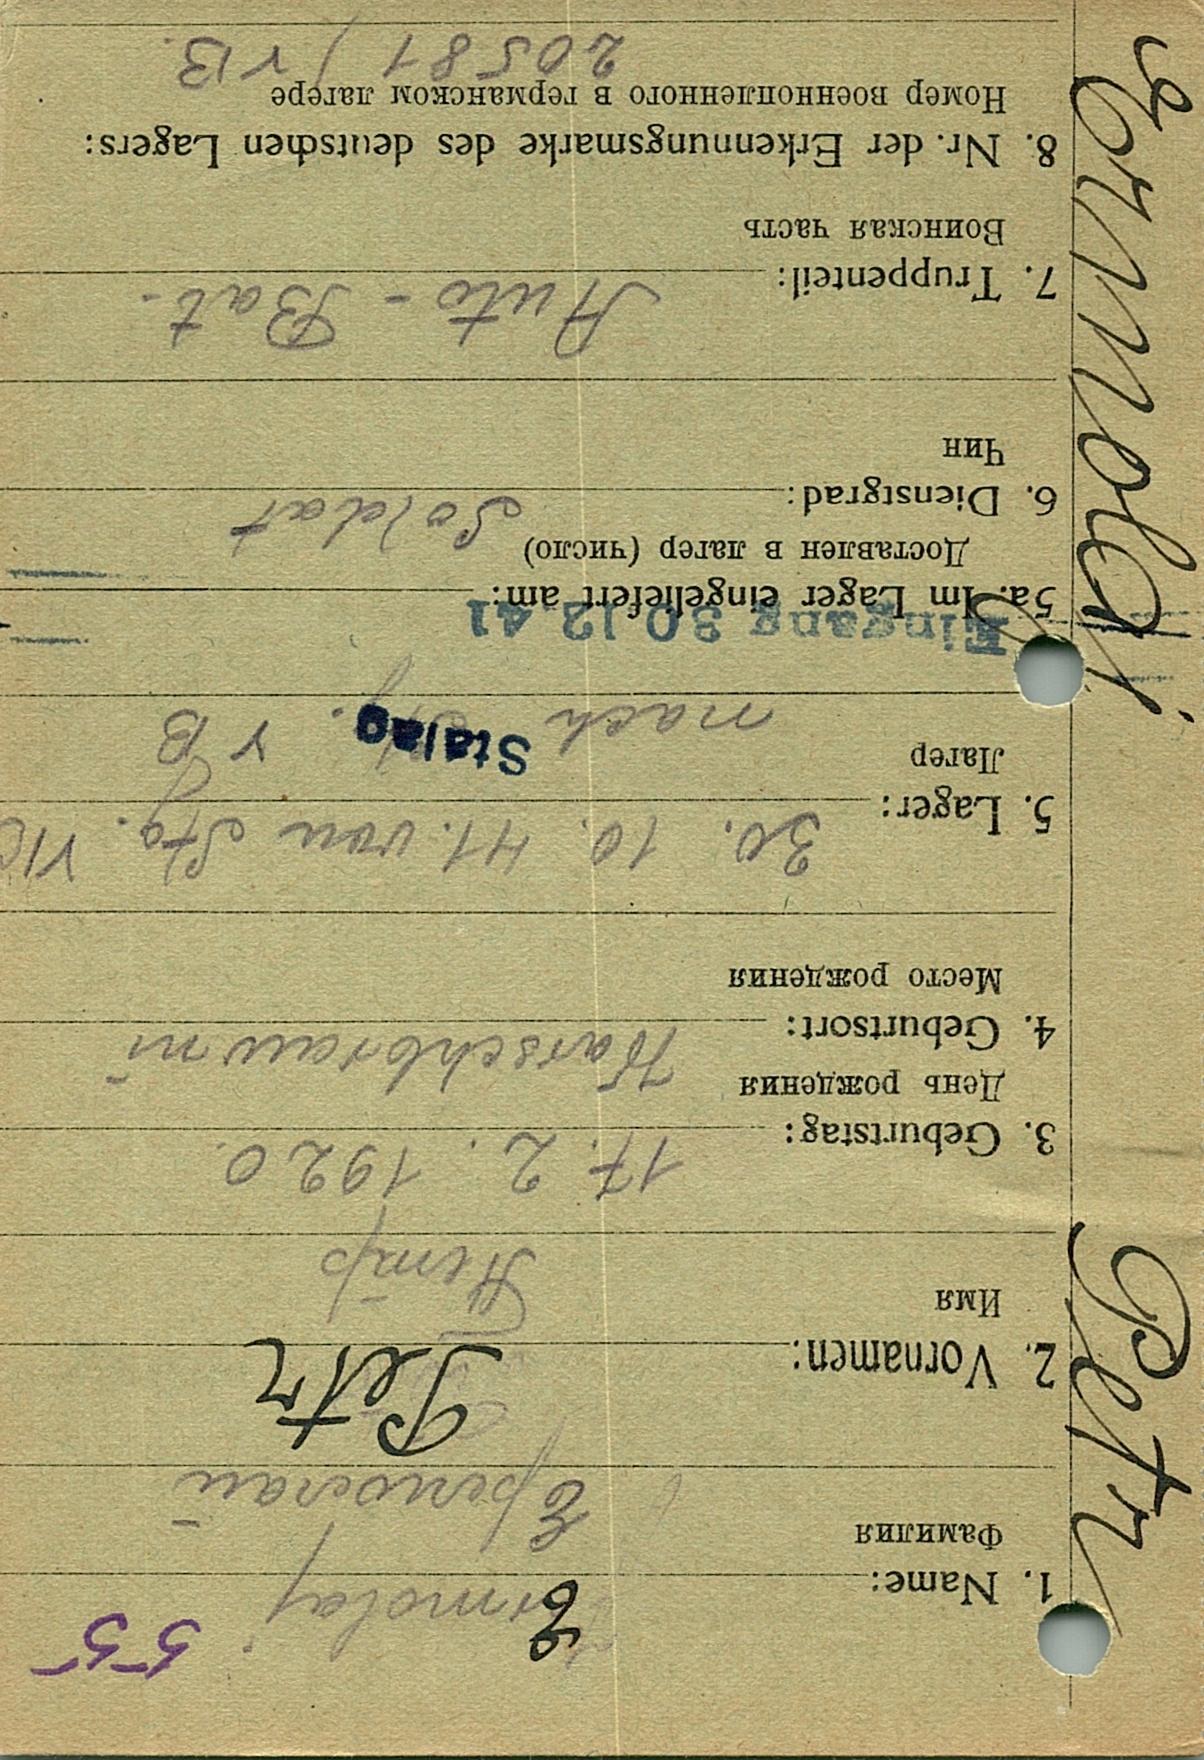 55
Ermolaj
1. Name:
Фамилия
Ермолай
Petr
2. Vornamen:
Имя
17. 2. 1920.
3. Geburtstag:
День рождения
4. Geburtsort:
Место рождения
30. 10. 41. von Stg. VIC
5. Lager:
Лагер
nach Stalag V B
Eingang 30 12 41
5a. Im Lager eingeliefert am:
Доставлен в лагер (число)
6. Dienstgrad: Soldat
Чин
7. Truppenteil: Auto - Bat.
Воинская часть
8. Nr. der Erkennungsmarke des deutschen Lagers:
Номер военнопленного в германском лагере
20581 / VB.
Ermolaj Petr